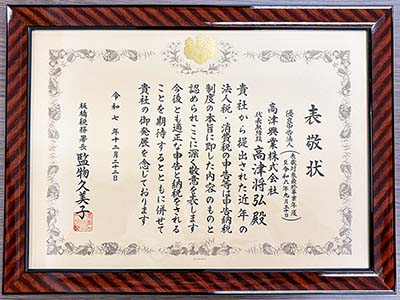 表敬状
優良申告法人
(表敬対象最終事業年度
至令和六年九月三十日)
高津興業株式会社
代表取締役 高津将弘殿
貴社から提出された近年の
法人税・消費税の申告等は申告納税
制度の本旨に即した内容のものと
認められここに深く敬意を表します
今後とも適正な申告と納税をされる
ことを期待するとともに併せて
貴社の御発展を念じております
令和七年十二月二十三日
板橋税務署長 監物久美子